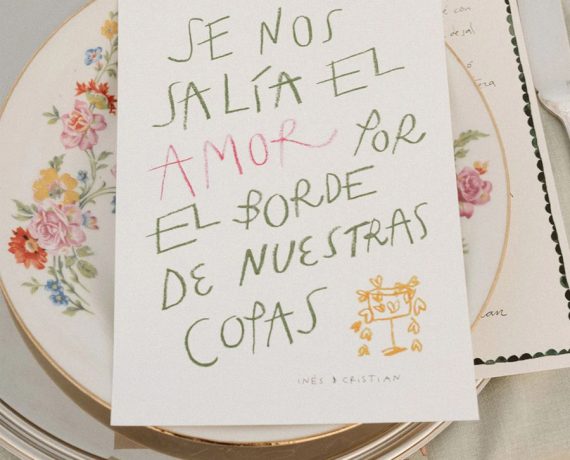 SE NOS
SALÍA EL
AMOR POR
EL BORDE
DE NUESTRAS
COPAS
INÉS & CRISTIAN
con